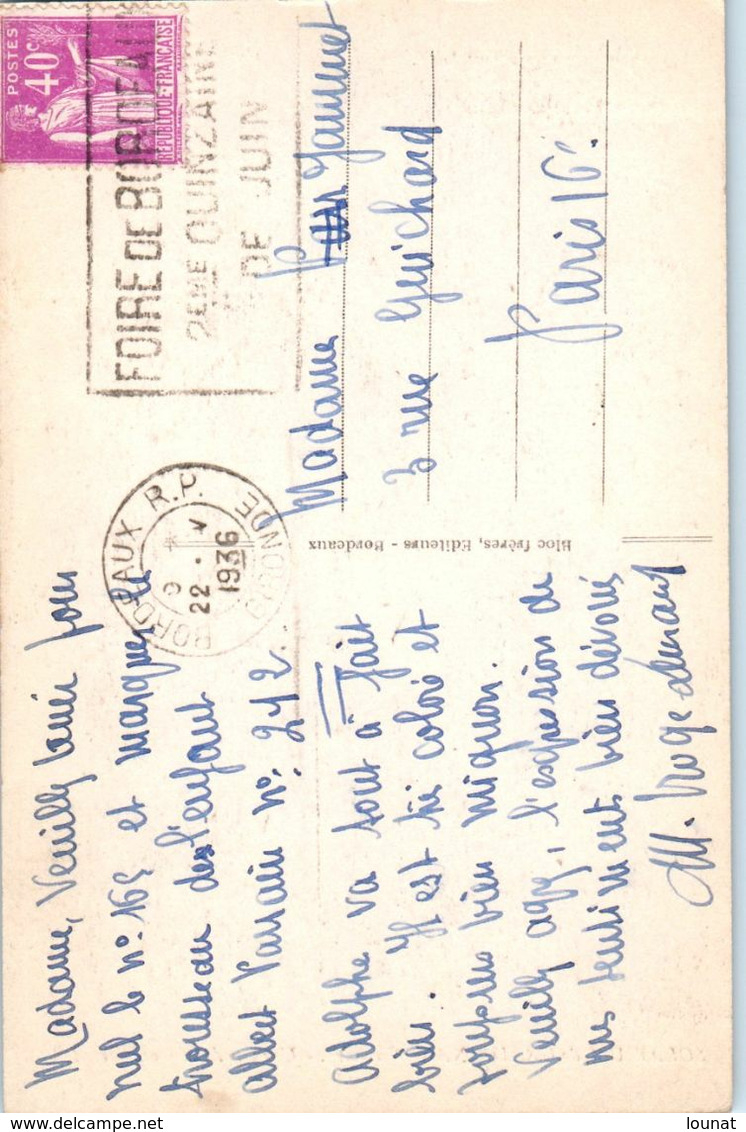 Madame, Veuillez tenir pour
nul le n° 165 et marquer le
trousseau de l'enfant
Albert Varrain n° 272
Adolphe va tout à fait
bien. Il est très coloré et
toujours bien mignon.
Veuillez agréer, l'expression de
mes sentiment bien dévoués
M.
Bloc frères, Editeurs - Bordeaux
Madame Jammet
3 rue Guichard
Paris 16e
POSTES
40c
REPUBLIQUE FRANÇAISE
FOIRE DE BORDEAUX
2EME QUINZAINE
DE JUIN
BORDEAUX R.P.
22 - V
1936
GIRONDE
lounat